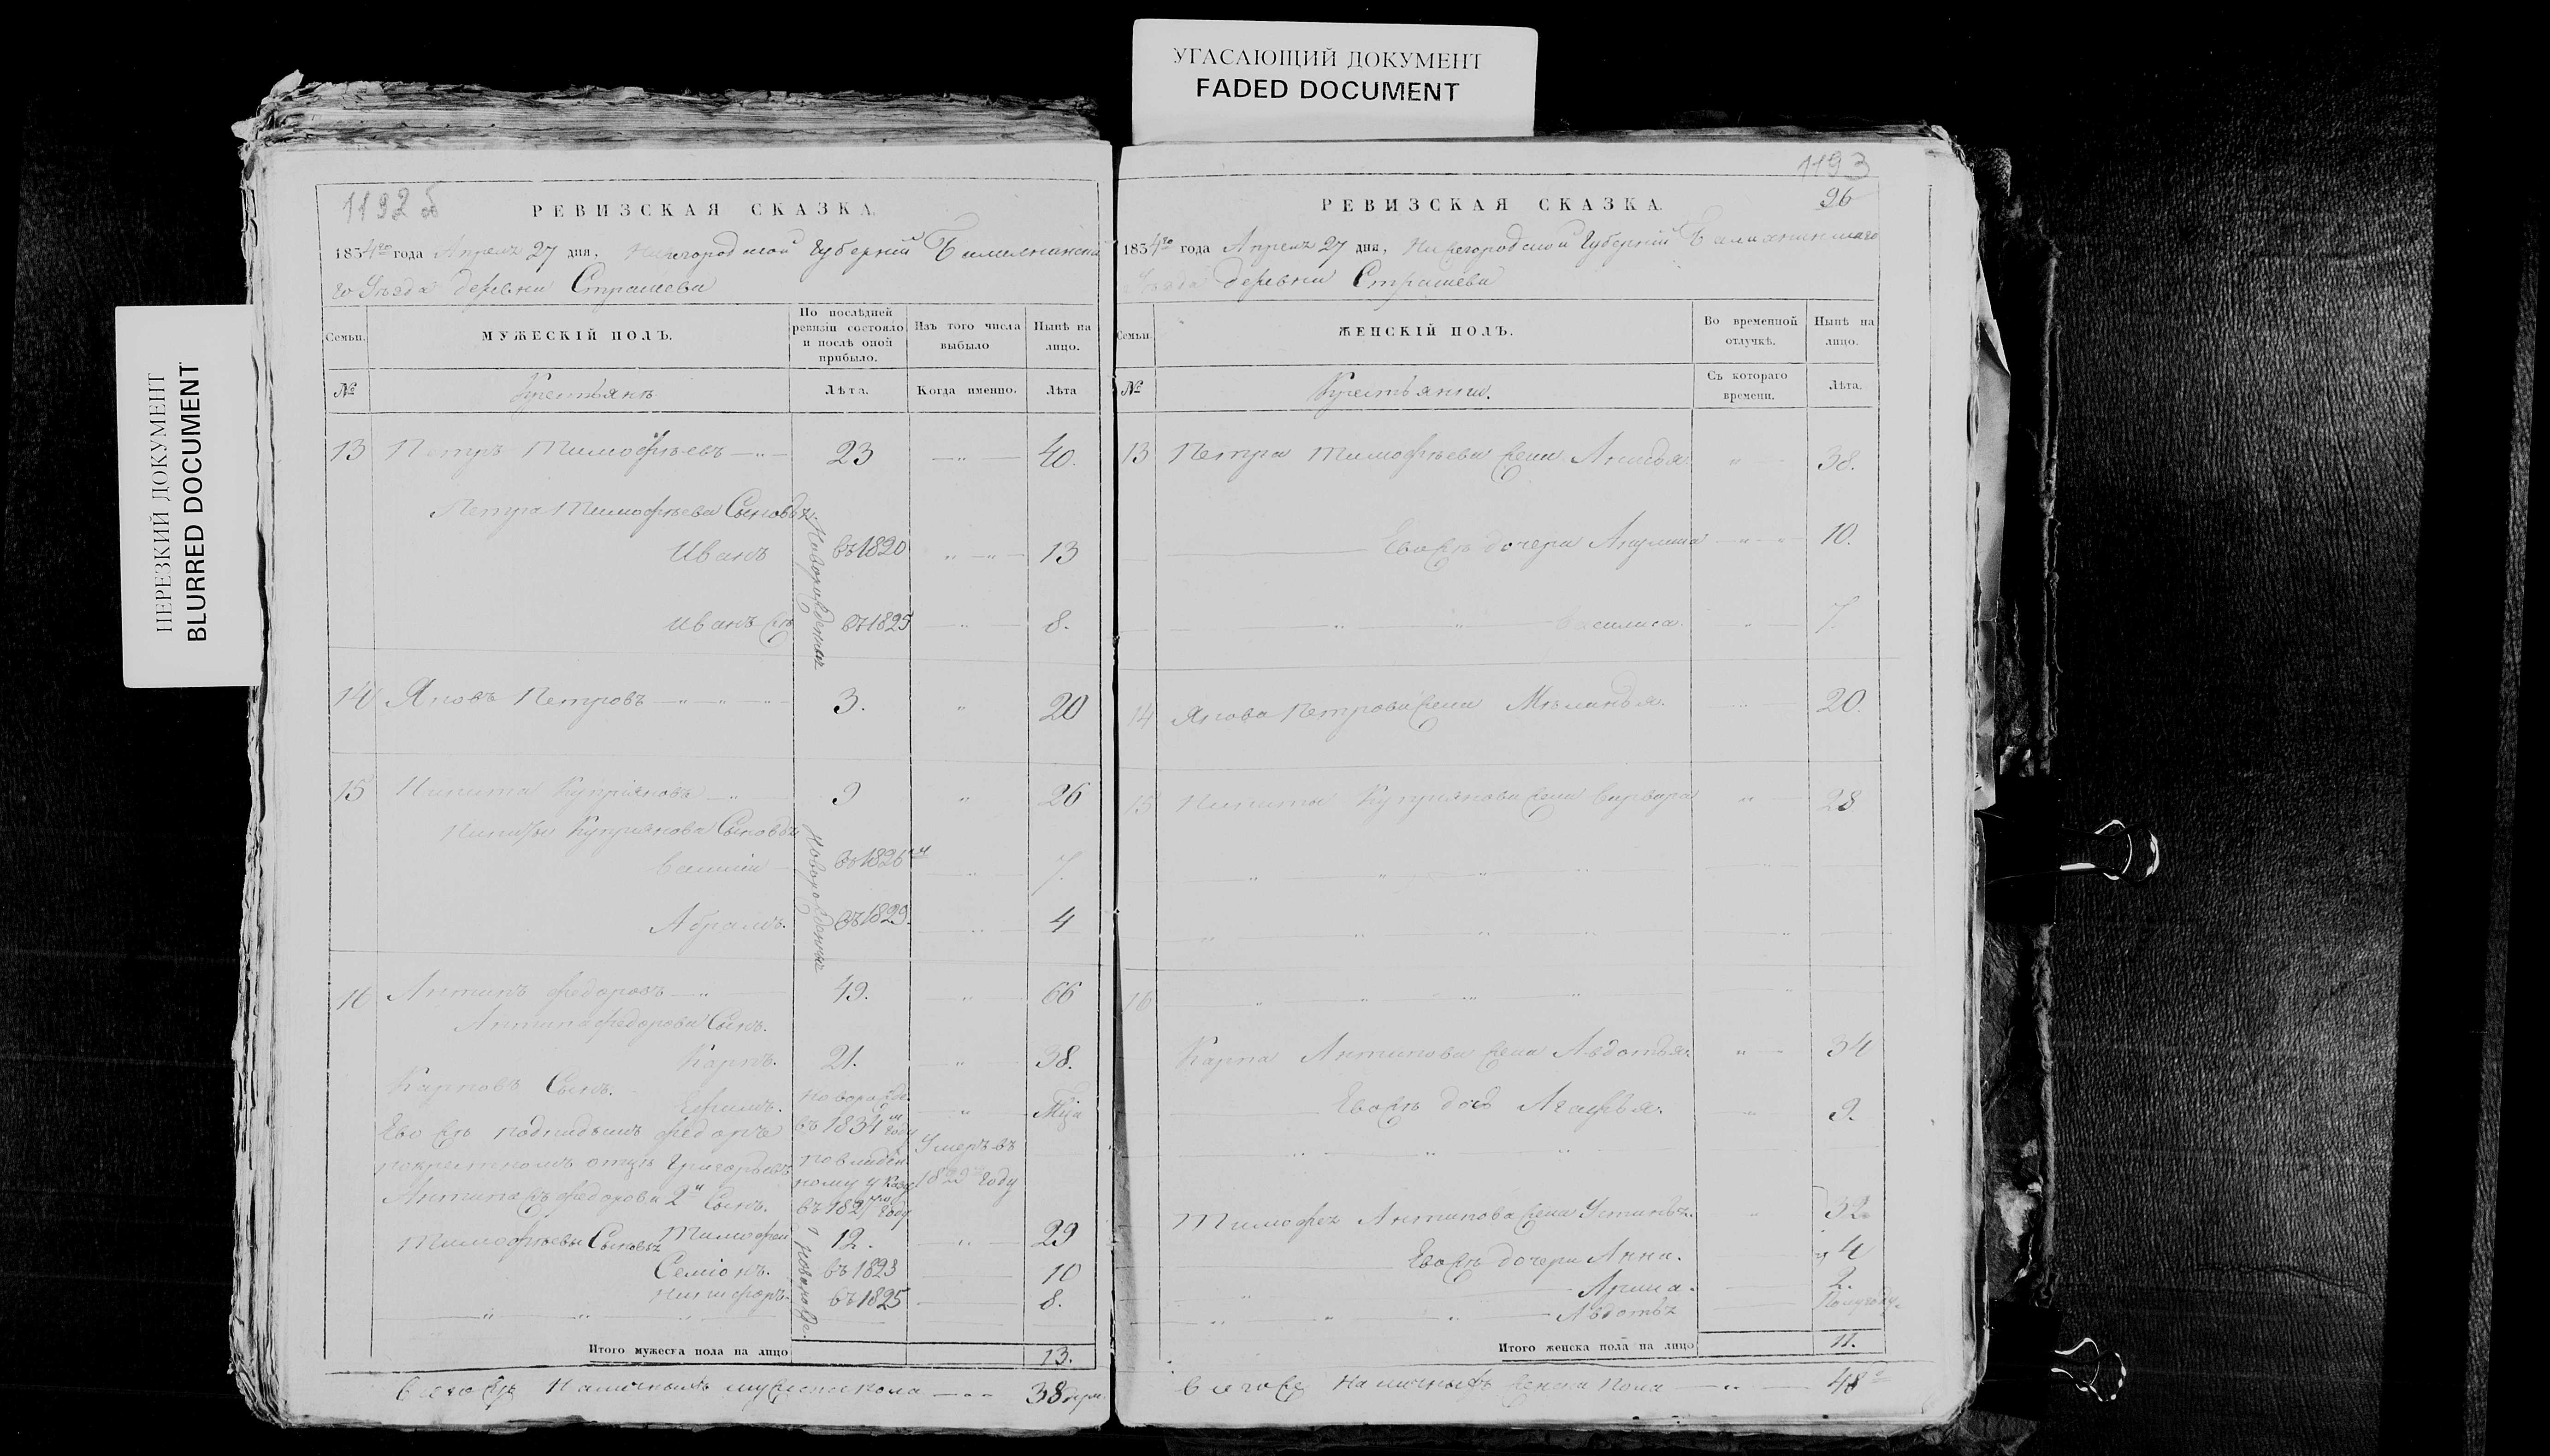 УГАСАЮЩИЙ ДОКУМЕНТ
FADED DOCUMENT
НЕРЕЗКИЙ ДОКУМЕНТ
BLURRED DOCUMENT
1192 об
РЕВИЗСКАЯ СКАЗКА.
1834го года Апреля 27 дня, Нижегородской Губернии Балахнинска
го Уѣзда деревни Страшева
Семьи.
МУЖЕСКІЙ ПОЛЪ.
По послѣдней ревизіи состояло и послѣ оной прибыло.
Изъ того числа выбыло
Нынѣ на лицо.
№
Крестьянъ
Лѣта.
Когда именно.
Лѣта
13 Петръ Тимофѣевъ 23 40.
Петра Тимофѣева Сыновья
Новорожденныя
Иванъ въ 1820 13
Иванъ же въ 1825 8.
14 Яковъ Петровъ 3. 20
15 Никита Купріяновъ 9 26
Никиты Купріянова Сыновья
Новорожденныя
въ 1826 7.
Абрамъ. въ 1829. 4
16 Антипъ Федоровъ 49. 66
Антипа Федорова Сынъ.
Карпъ. 21. 38.
Карповъ Сынъ.
Ефимъ. Новорожде.
Ево же Федоръ въ 1834м году
Умеръ въ
покрестномъ отцѣ Григорьевъ
1829 году
Антипа же Федорова 2й Сынъ.
Тимофей 12. 29
Тимофѣевы Сыновья
Новорожде.
Семіонъ. въ 1823 10
Никифоръ. въ 1825 8.
Итого мужеска пола на лицо 13.
Всего же Наличныхъ мужеска пола 38
1193
96
РЕВИЗСКАЯ СКАЗКА.
1834го года Апреля 27 дня, Нижегородской Губернии Балахнинскаго
Уѣзда деревни Страшева
Семьи.
ЖЕНСКІЙ ПОЛЪ.
Во временной отлучкѣ.
Нынѣ на лицо.
№
Крестьянки.
Съ котораго времени.
Лѣта.
13 Петра Тимофѣева жена 38.
Евоже дочери Акулина 10.
Василиса. 7.
14 Якова Петрова жена Мѣланья. 20.
15 Никиты Купріянова жена Варвара 28
16
Карпа Антипова жена Авдотья. 34
Евоже дочь Агафья. 9.
Тимофея Антипова жена Устинья. 32
Евоже дочери Анна. 4
2.
Авдотья Полугоду.
Итого женска пола на лицо 11.
Всего же Наличныхъ женска пола 48